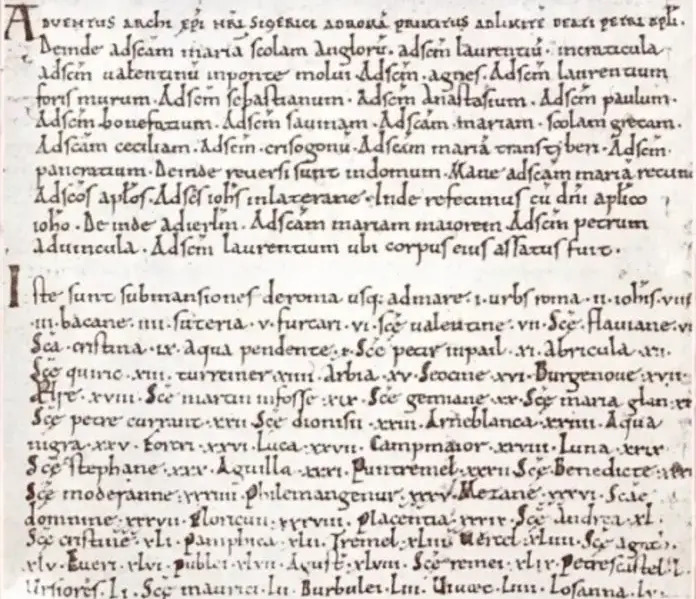 ADVENTUS ARCHI EPI NRI SIGERICI AD ROMA PRIMITUS AD LIMITE BEATI PETRI APLI.
Deinde adscam maria scolam anglorũ. adscm laurentiũ. incraticula
adscm ualentinũ inponte molui. Adscm. agnes. Adscm laurentium
foris murum. Adscm sebastianum. Adscm anastasium. Adscm paulum.
Adscm bonefatium. Adscm sauinam. Adscam. mariam. scolam grecam.
Adscam ceciliam. Adscm. crisogonũ. Adscam mariã transtyberi. Adscm.
pancratium. Deinde reuersi sunt indomum. Mane adscam mariã
Adscos aplos. Adscs iohs inlaterane. Inde refecimus cũ dni aplico
ioho. Deinde adierlm. Adscam mariam maiorem Adscm petrum
aduincula. Adscm laurentium ubi corpus eius assatus fuit.
Iste sunt submansiones deroma usq; admare. i. urbs roma. ii. iohis. viiii
iii. bacane. iiii. suteria. v. furcari. vi. sce ualentine. vii. Sce. flauiane. vi
Sca. cristina. ix. Aqua pendente. x. Sce petir inpail. xi. Abricula. xii.
Sce quiric. xiii. turreiner. xiiii. Arbia. xv. Seocine. xvi. Burgenoue. xvii.
Ælse. xviii. Sce martin infosse. xix. Sce gemiane. xx. Sce maria glan. xi
Sce petre currant. xxii. Sce dionisii. xxiii. Arneblanca. xxiiii. Aqua
nigra. xxv. forcri. xxvi. Luca. xxvii. Campmaior. xxviii. Luna. xxix.
Sce stephane. xxx. Aguilla. xxxi. Puntremel. xxxii. Sce. Benedicte. xxxiii
Sce moderanne. xxxiiii. Philemangenur. xxxv. Mezane. xxxvi. Scae
domnine. xxxvii. floricun. xxxviii. placentia. xxxix. Sce Andrea. xl.
Sce cristine. xli. pamphica. xlii. Tremel. xliii. Uercel. xliiii. Sce agath.
xlv. Everi. xlvi. publei. xlvii. Agust. xlviii. Sce remei. xlix. petrescastel. l.
Ursiores. li. Sce maurici. lii. Burbulei. liii. Uiuæc. liiii. Losanna. lv.